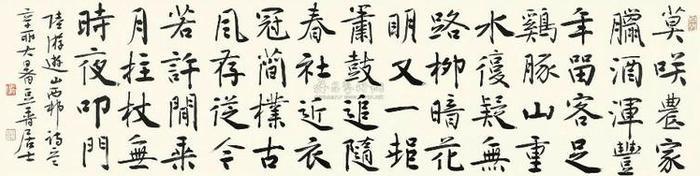 莫咲農家
臘酒渾豐
年留客足
鷄豚山重
水復疑無
路柳暗花
明又一邨
蕭鼓追隨
春社近衣
冠簡樸古
風存從今
若許閒乘
月拄杖無
時夜叩門
陸游遊山西邨詩
大暑居士